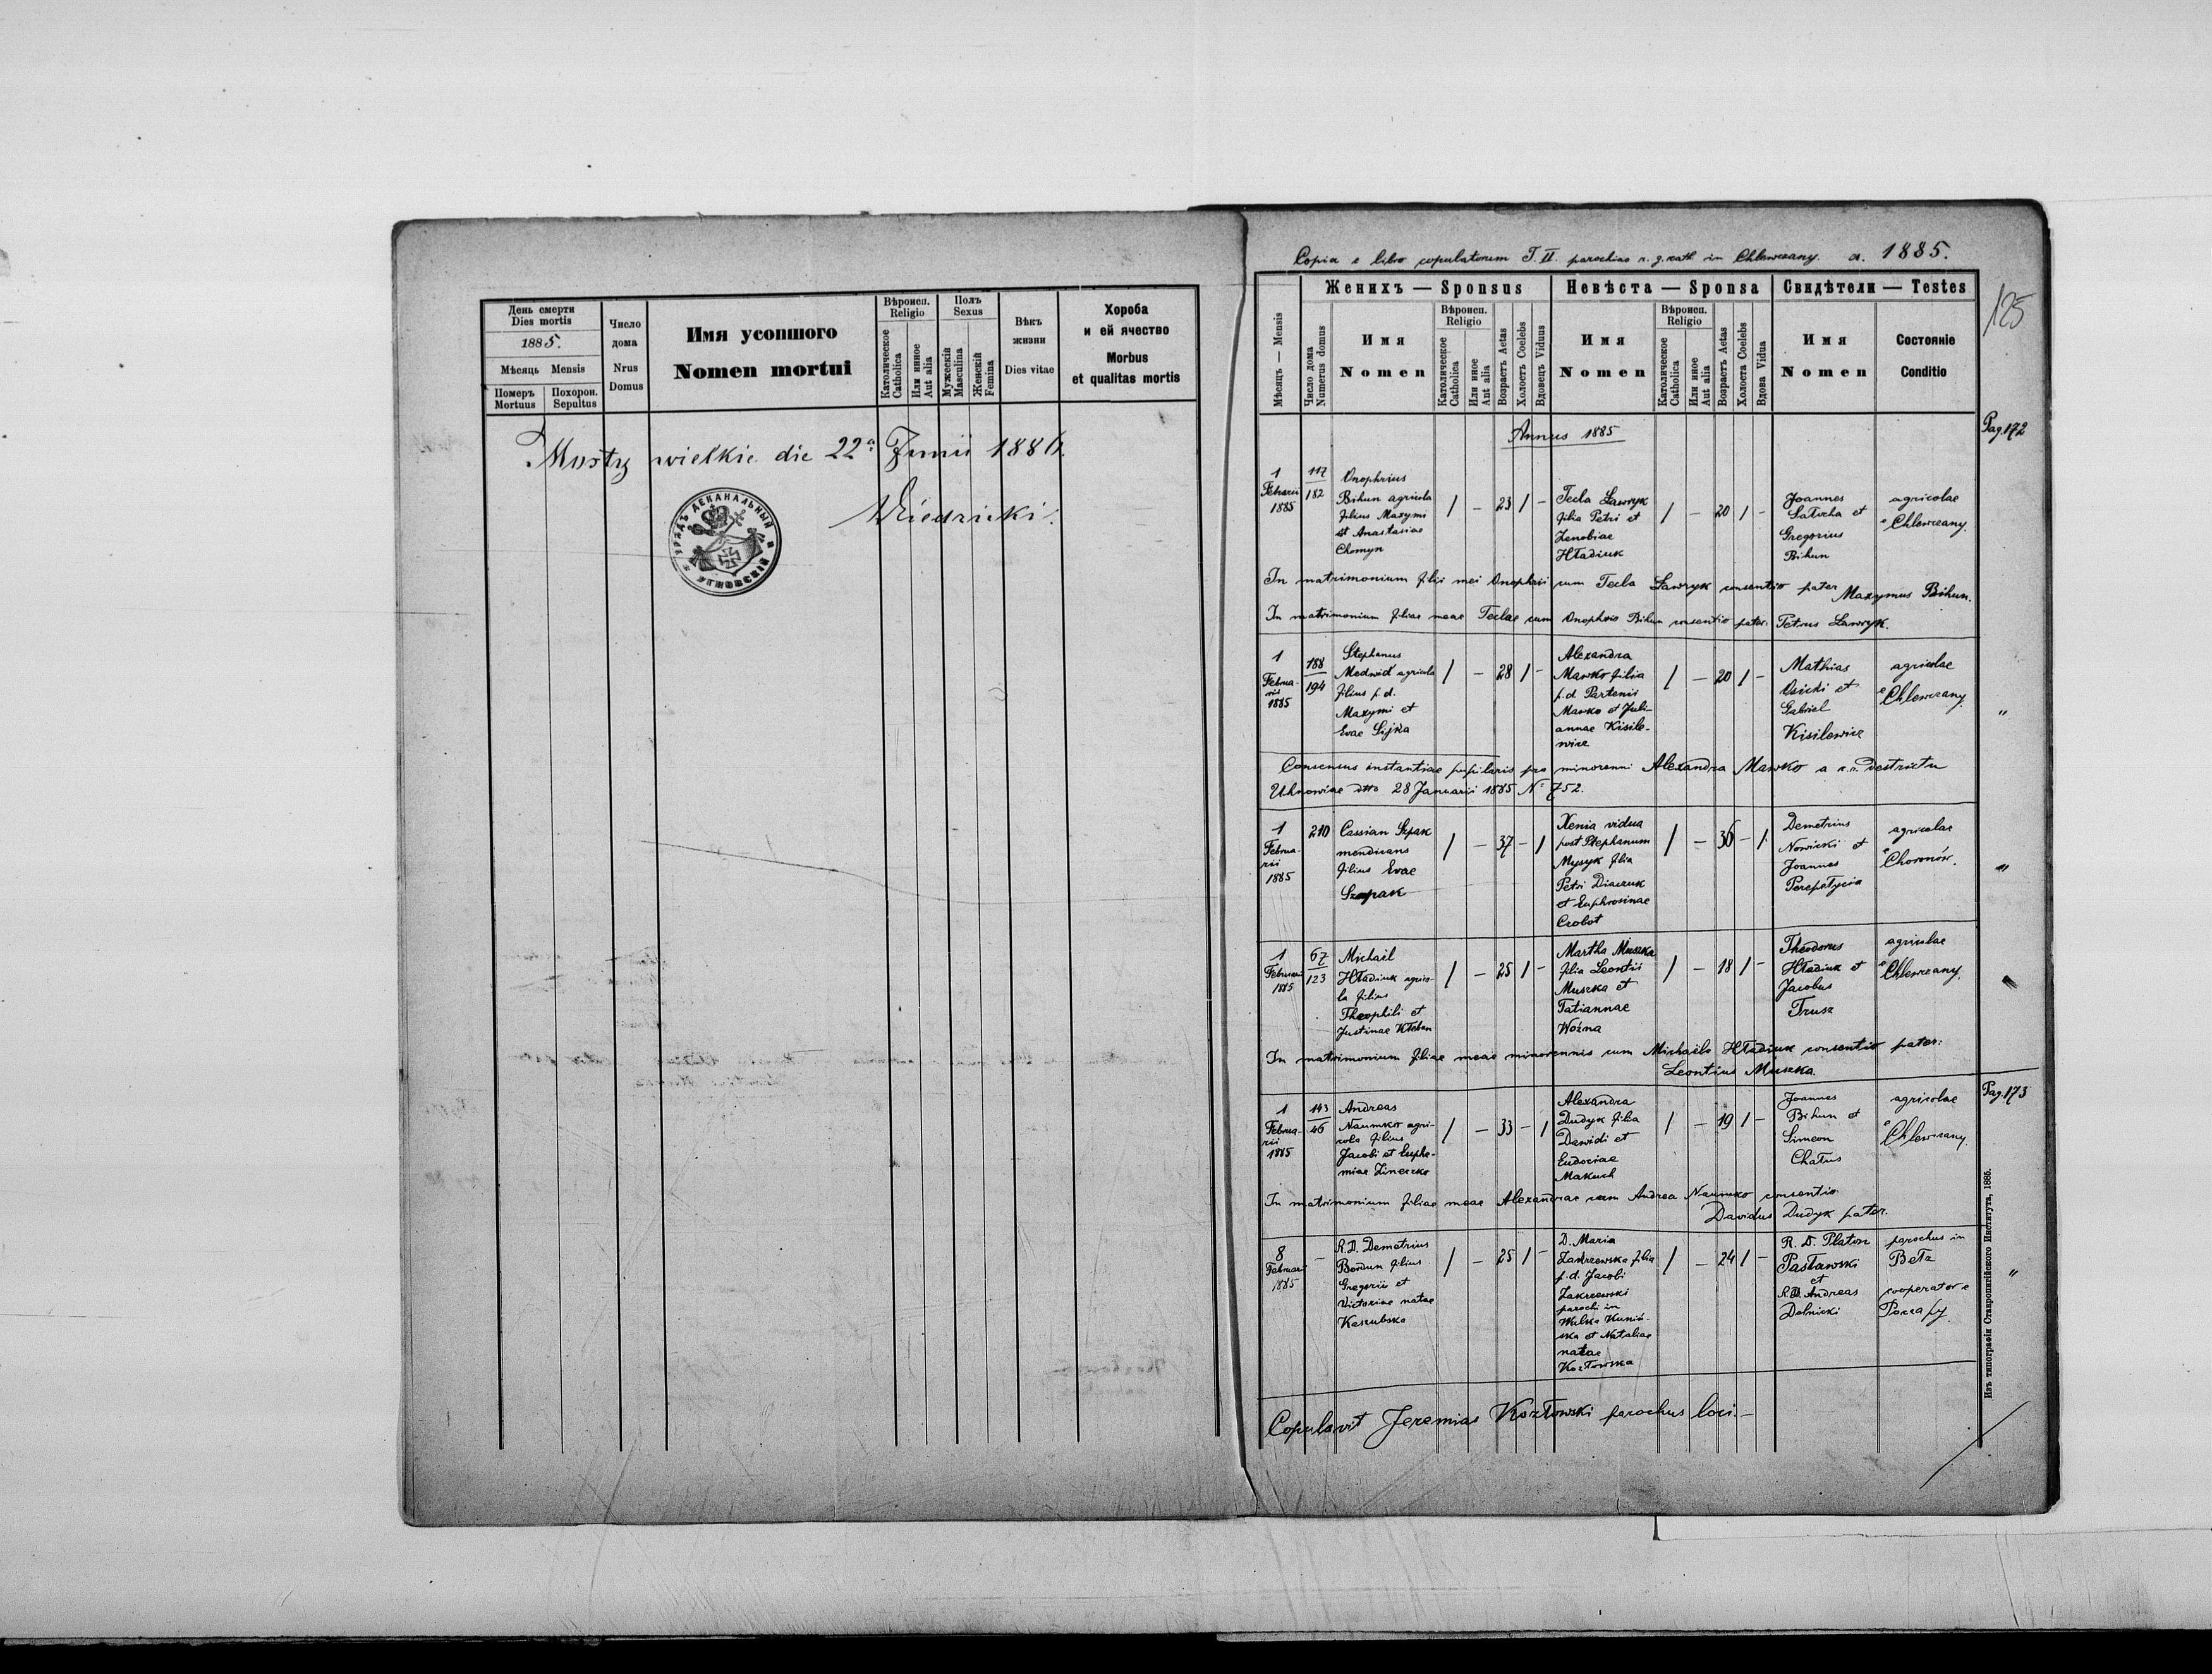 День смерти
Dies mortis
1885.
Мѣсяць Mensis
Померъ
Mortuus
Похорон.
Sepultus
Число
дома
Nrus
Domus
Имя усопшого
Nomen mortui
Вѣроисп.
Religio
Католическое
Catholica
Или инное
Aut alia
Полъ
Sexus
Мужескій
Masculina
Женскій
Femina
Вѣкъ
жизни
Dies vitae
Хороба
и ей ячество
Morbus
et qualitas mortis
Mosty wielkie die 22ª Junii 1886.
УРЯДЪ ДЕКАНАЛЬНЫЙ
УГНОВСКІЙ
Copia e libro copulatorum T. II. parochiae r. g. cath. in Chlewczany. a. 1885.
125
Женихъ — Sponsus
Невѣста — Sponsa
Свидѣтели — Testes
Мѣсяцъ — Mensis
Число дома
Numerus domus
Имя
Nomen
Вѣроисп.
Religio
Католическое
Catholica
Или инное
Aut alia
Возрастъ Aetas
Холостъ Coelebs
Вдовецъ Viduus
Имя
Nomen
Вѣроисп.
Religio
Католическое
Catholica
Или инное
Aut alia
Возрастъ Aetas
Холоста Coelebs
Вдова Vidua
Имя
Nomen
Состояніе
Conditio
Annus 1885
Pag. 172
1
Februarii
1885
117
182
Onophrius
Bihun agricola
filius Maxymi
et Anastasiae
Chomyn
/ — 23 / —
Tecla Ławryk
filia Petri et
Zenobiae
Hładiuk
/ — 20 / —
Joannes
Łatocha et
Gregorius
Bihun
agricolae
e Chlewczany.
In matrimonium filii mei Onophrii cum Tecla Ławryk consentio pater Maxymus Bihun.
In matrimonium filiae meae Teclae cum Onophrio Bihun consentio pater Petrus Ławryk.
1
Februa-
rii
1885
188
194
Stephanus
Medwid agricola
filius p. d.
Maxymi et
Evae Sijka
/ — 28 / —
Alexandra
Mawko filia
p. d. Partenii
Mawko et Juli-
annae Kisile-
wicz
/ — 20 / —
Mathias
Osicki et
Gabriel
Kisilewicz
agricolae
e Chlewczany.
"
Consensus instantiae pupilaris pro minorenni Alexandra Mawko a c. r. Destrictu
Uhnowiae dtto 28 Januarii 1885 Nº 752.
1
Februa-
rii
1885
210
Cassian Szpak
mendicans
filius Evae
Szpak
/ — 37 — /
Xenia vidua
post Stephanum
Mysyk filia
Petri Diaczuk
et Euphrosinae
Czobot
/ — 36 — /
Demetrius
Nowicki et
Joannes
Perepełycia
agricolae
e Choronów.
"
1
Februarii
1885
67
123
Michael
Hładiuk agrico-
la filius
Theophili et
Justinae Kłeban
/ — 25 / —
Martha Muszka
filia Leontii
Muszka et
Tatiannae
Woźna
/ — 18 / —
Theodorus
Hładiuk et
Jacobus
Trusz
agricolae
e Chlewczany.
"
In matrimonium filiae meae minorennis cum Michaele Hładiuk consentio pater:
Leontius Muszka.
1
Februa-
rii
1885
143
46
Andreas
Naumko agri-
cola filius
Jacobi et Euphe-
miae Zineczko
/ — 33 — /
Alexandra
Dudyk filia
Dawidi et
Eudociae
Makuch
/ — 19 / —
Joannes
Bihun et
Simeon
Chałus
agricolae
e Chlewczany.
Pag. 173
In matrimonium filiae meae Alexandrae cum Andrea Naumko consentio
Davidus Dudyk pater.
8
Februarii
1885
—
R. D. Demetrius
Bordun filius
Gregorii et
Victoriae natae
Kaszubska
/ — 25 / —
D. Maria
Zakrzewska filia
p. d. Jacobi
Zakrzewski
parochi in
Wulka Kuniń-
ska et Nataliae
natae
Kozłowska
/ — 24 / —
R. D. Platon
Pasławski
et
R. D. Andreas
Dolnicki
parochus in
Bełz
cooperator e
"
Copulavit Jeremias Kozłowski parochus loci.—
Изъ типографіи Ставропигійского Института, 1885.